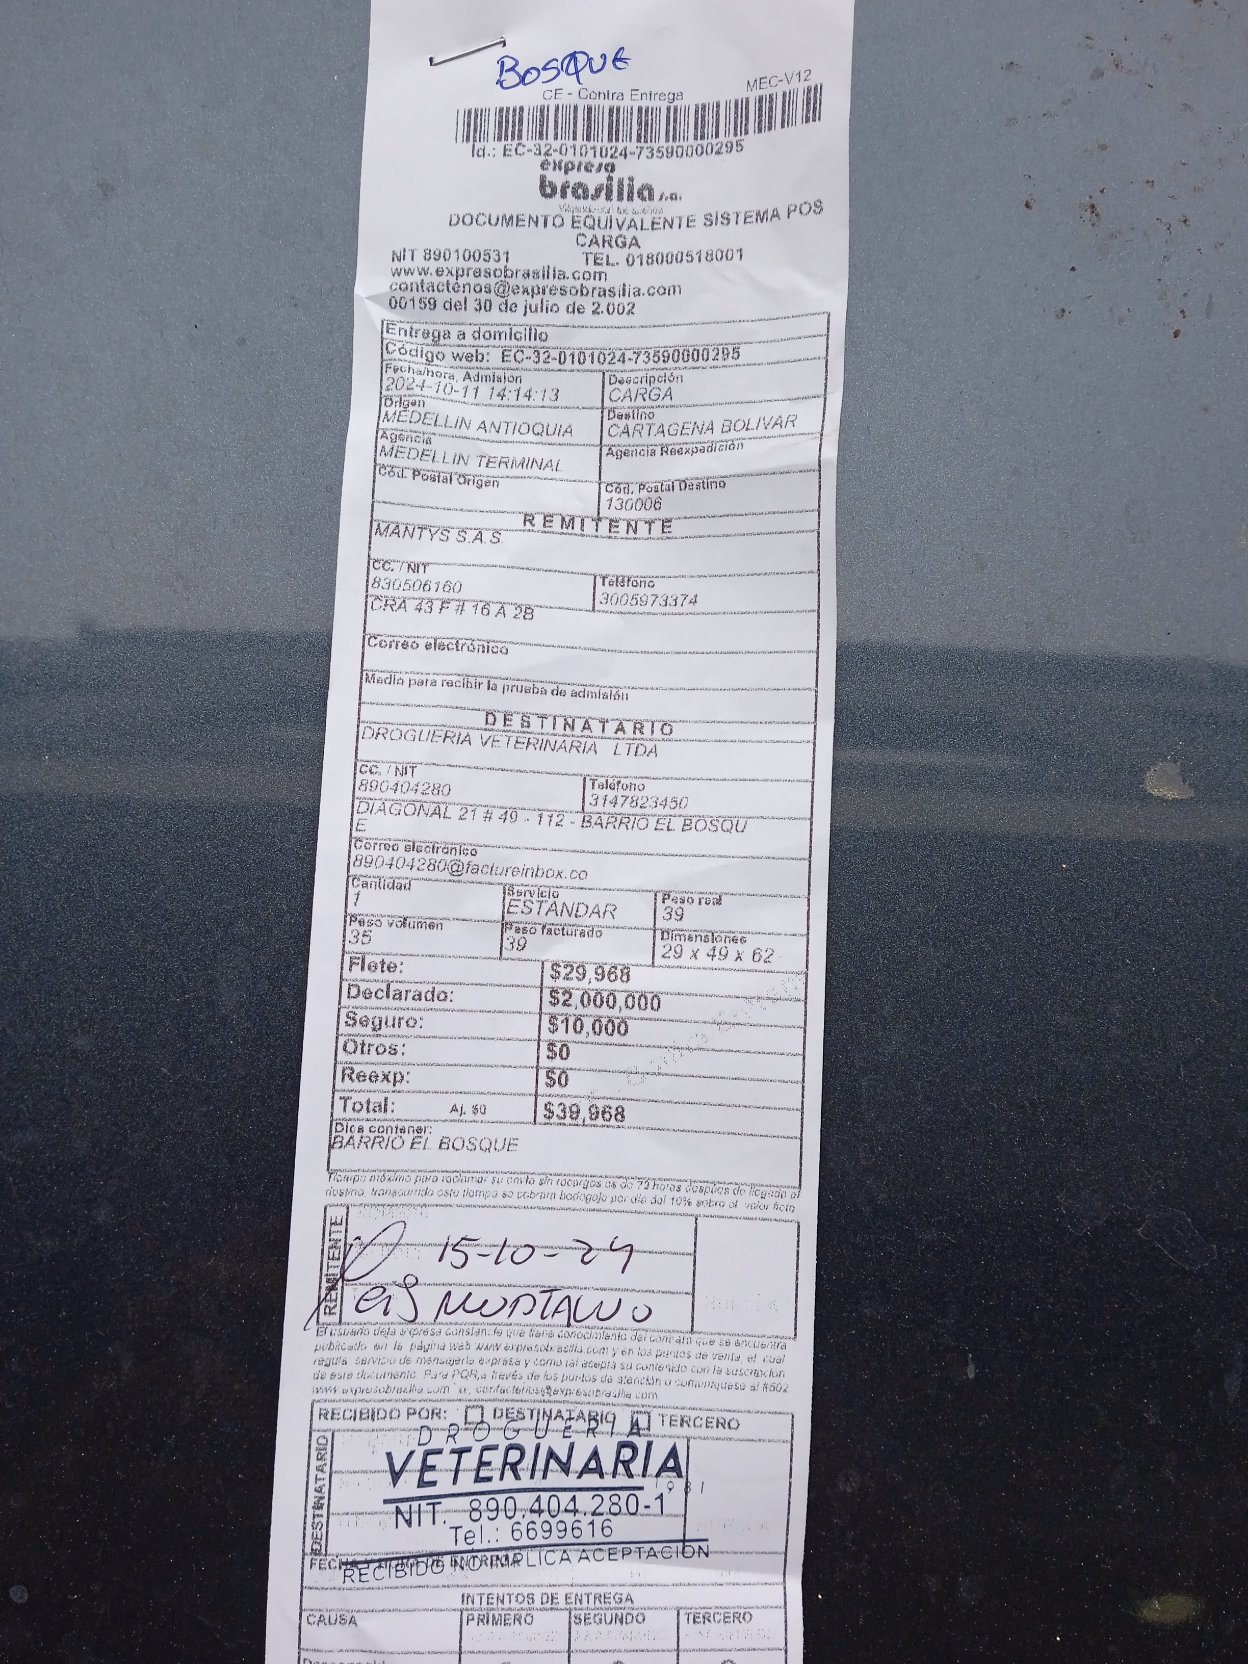 BOSQUE
CE - Contra Entrega
MEC-V12
Id.: EC-32-0101024-73590000295
expreso
brasilia s.a.
DOCUMENTO EQUIVALENTE SISTEMA POS
CARGA
NIT 890100531 TEL. 018000518001
www.expresobrasilia.com
contactenos@expresobrasilia.com
00159 del 30 de julio de 2.002
Entrega a domicilio
Código web: EC-32-0101024-73590000295
Fecha/hora, Admision Descripción
2024-10-11 14:14:13 CARGA
Origen Destino
MEDELLIN ANTIOQUIA CARTAGENA BOLIVAR
Agencia Agencia Reexpedición
MEDELLIN TERMINAL
Cód. Postal Origen Cód. Postal Destino
130006
REMITENTE
MANTYS S.A.S
CC. / NIT Teléfono
830506160 3005973374
CRA 43 F # 16 A 28
Correo electrónico
Medio para recibir la prueba de admisión
DESTINATARIO
DROGUERIA VETERINARIA LTDA
CC. / NIT Teléfono
890404280 3147823450
DIAGONAL 21 # 49 - 112 - BARRIO EL BOSQU
E
Correo electrónico
890404280@factureinbox.co
Cantidad Servicio Peso real
1 ESTANDAR 39
Peso volumen Peso facturado Dimensiones
35 39 29 x 49 x 62
Flete: $29,968
Declarado: $2,000,000
Seguro: $10,000
Otros: $0
Reexp: $0
Total: Aj. $0 $39,968
Dice contener:
BARRIO EL BOSQUE
Tiempo máximo para reclamar su envío sin recargos es de 72 horas después de llegado al
destino, transcurrido este tiempo se cobrara bodegaje por día del 10% sobre el valor flete
REMITENTE
15-10-24
El usuario deja expresa constancia que tiene conocimiento del contrato que se encuentra
publicado en la página web www.expresobrasilia.com y en los puntos de venta, el cual
regula servicio de mensajería expresa y como tal acepta su contenido con la suscripción
de este documento. Para PQR,a través de los puntos de atención o comuníquese al #502
www.expresobrasilia.com contactenos@expresobrasilia.com
RECIBIDO POR: DESTINATARIO TERCERO
DESTINATARIO
DROGUERIA
VETERINARIA
1981
NIT. 890.404.280-1
Tel.: 6699616
FECHA Y HORA DE ENTREGA
RECIBIDO NO IMPLICA ACEPTACIÓN
INTENTOS DE ENTREGA
CAUSA PRIMERO SEGUNDO TERCERO